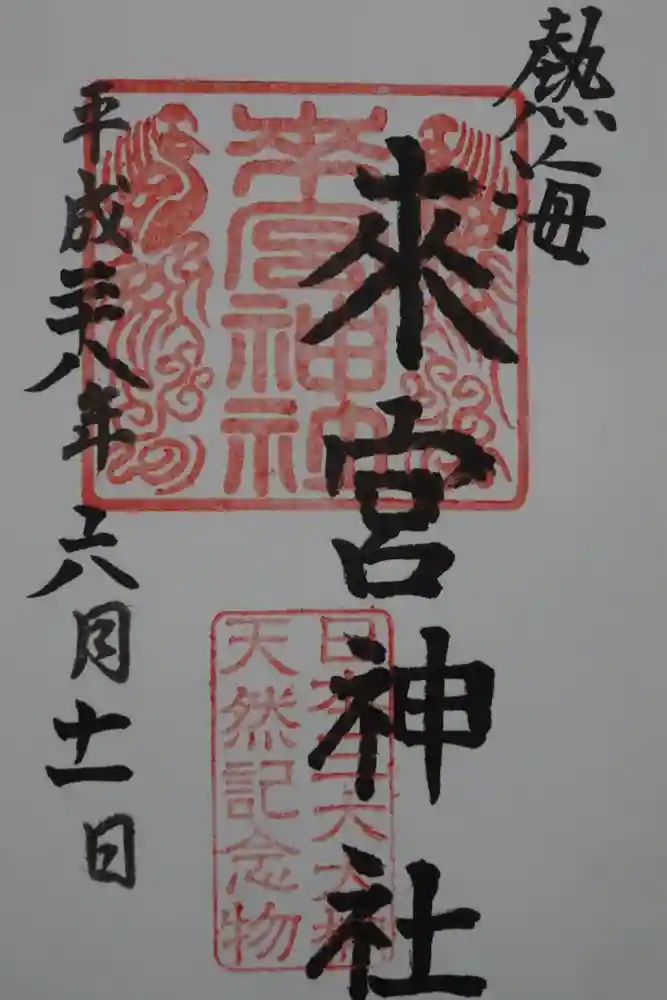 熱海
來宮神社
來宮神社
日本三大大楠
天然記念物
平成二十八年 六月十一日